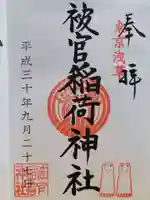 奉拝
東京浅草
被官稲荷神社
平成三十年九月二十七日